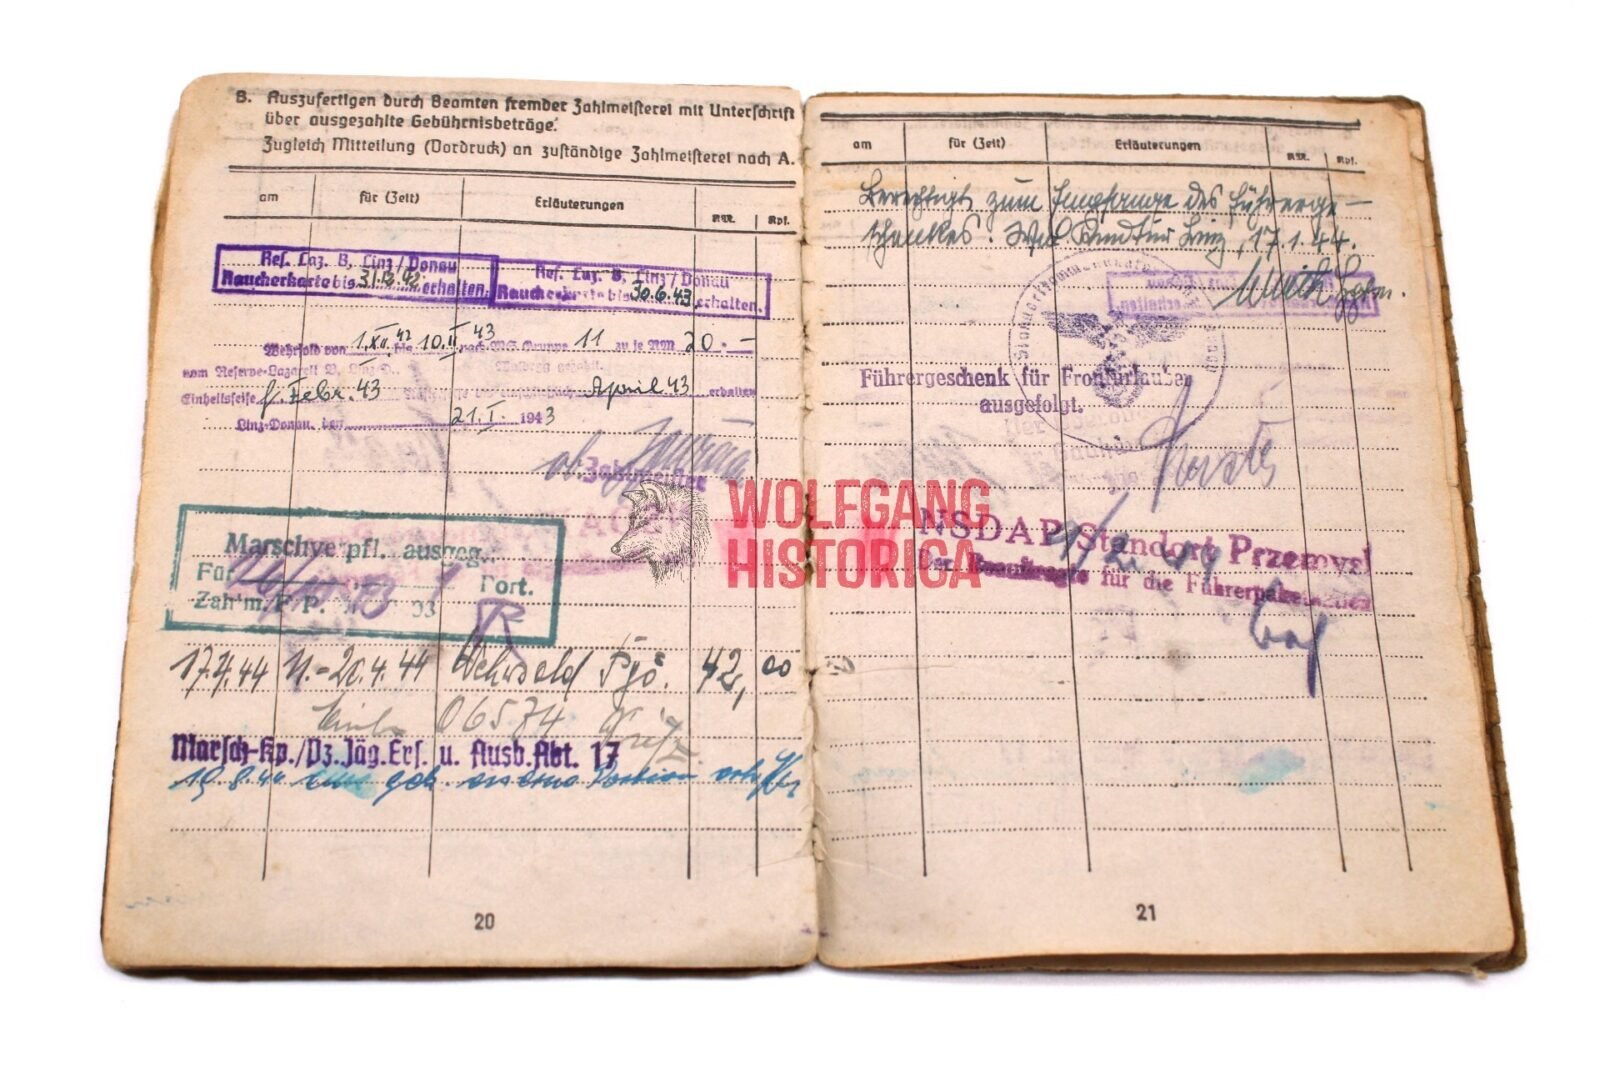 B. Auszufertigen durch Beamten fremder Zahlmeisterei mit Unterschrift
über ausgezahlte Gebührnisbeträge.
Zugleich Mitteilung (Vordruck) an zuständige Zahlmeisterei nach A.
am für (Zeit) Erläuterungen RM. Rpf.
Res. Laz. B, Linz/Donau
Raucherkarte bis 31.12.42 erhalten.
Res. Laz. B, Linz/Donau
Raucherkarte bis 30.6.43 erhalten.
Wehrsold von 1.XII.42 bis 10.II.43 nach WS. Gruppe 11 zu je RM 20.-
vom Reserve-Lazarett B, Linz/D.
Einheitsseife f. Febr. 43 April 43 erhalten
Linz-Donau, den 21.I. 1943
Zahlmeister
Marschverpfl. ausgeg.
Für Port.
Zahlm.
17.4.44 11.-20.4.44 Wehrsold 42,00
06574
Marsch-Kp./Pz.Jäg.Ers. u. Ausb.Abt. 17
19.8.44 eiserne Portion
20
am für (Zeit) Erläuterungen RM. Rpf.
Berechtigt zum Empfange des Führerge-
schenkes. Linz, 17.1.44.
Führergeschenk für Fronturlauber
ausgefolgt.
NSDAP Standort Przemysl
Der Beauftragte für die Führerpaketaktion
21
WOLFGANG
HISTORICA